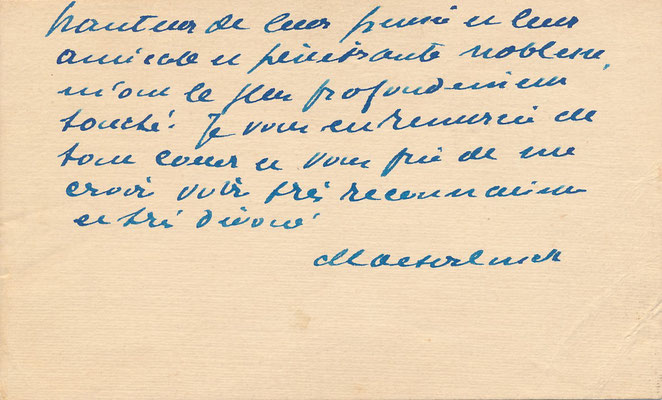 hauteur de leur pensée et leur
amicale et pénétrante noblesse,
m'ont le plus profondément
touché. Je vous en remercie de
tout coeur et vous prie de me
croire votre très reconnaissant
et très dévoué
Maeterlinck